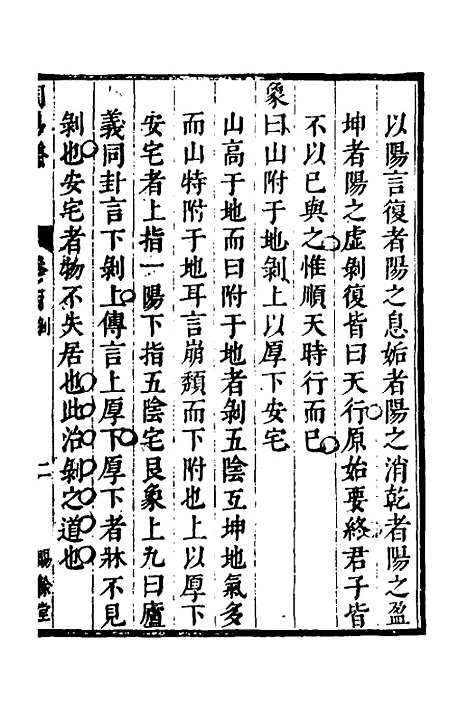 以陽言復者陽之息姤者陽之消乾者陽之盈
坤者陽之虛剝復皆曰天行原始要終君子皆
不以已與之惟順天時行而已
象曰山附于地剝上以厚下安宅
山高于地而曰附于地者剝五陰互坤地氣多
而山特附于地耳言崩頹而下附也上以厚下
安宅者上指一陽下指五陰宅艮象上九曰廬
義同卦言下剝上傳言上厚下厚下者牀不見
剝也安宅者物不失居也此治剝之道也
剝 二 賜餘堂